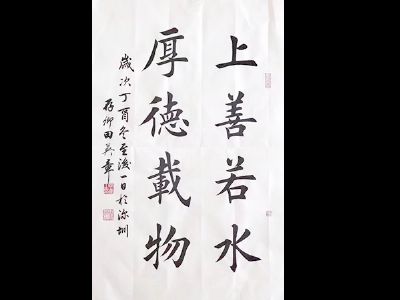 上善若水
厚德載物
歲次丁酉冬至後一日於深圳
存卿田英章